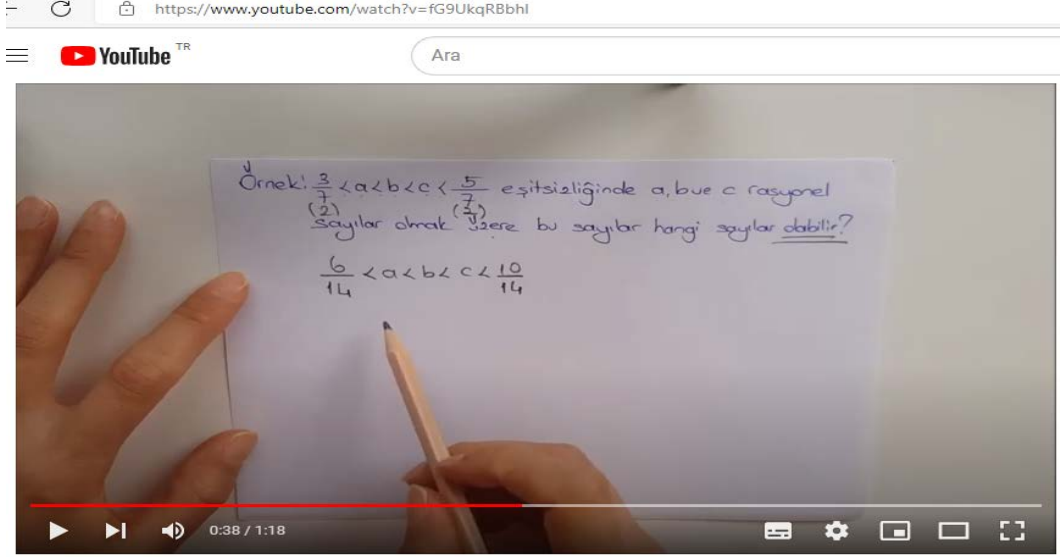 https://www.youtube.com/watch?v=fG9UkqRBbhI
YouTube TR
Ara
Örnek: 3/7 < a < b < c < 5/7 eşitsizliğinde a, b ve c rasyonel
(2) (2)
sayılar olmak üzere bu sayılar hangi sayılar olabilir?
6/14 < a < b < c < 10/14
0:38 / 1:18